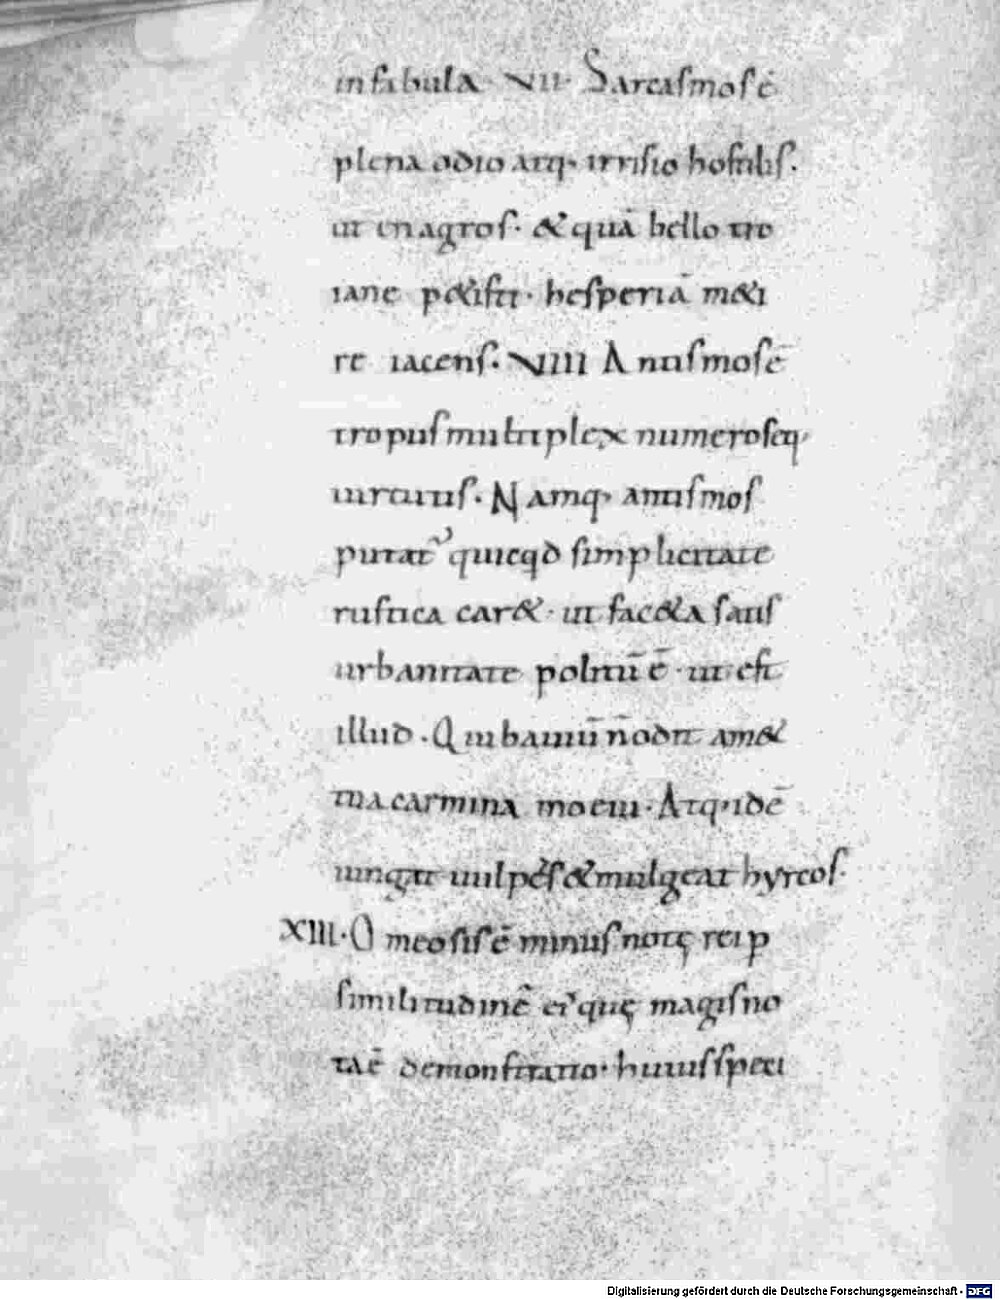 in fabula · VII · Sarcasmos ē
plena odio atq· irrisio hostilis.
ut en agros · & quā bello tro
iane petisti · hesperiā meti
re iacens. VIIII Antismos ē
tropus multiplex numerosęq·
uirtutis. Namq· antismos
putat᷒ quicqd simplicitate
rustica car& · ut fac&a satis
urbanitate politū ē · ut est
illud. Qui bauiū n̄ odit am&
tua carmina moeui. Atq· idē
iungat uulpes & mulgeat hyrcos.
XIII · Omeosis ē minus notę rei p
similitudinē ei᷒ quę magis no
ta ē demonstratio · huius speci
Digitalisierung gefördert durch die Deutsche Forschungsgemeinschaft - DFG